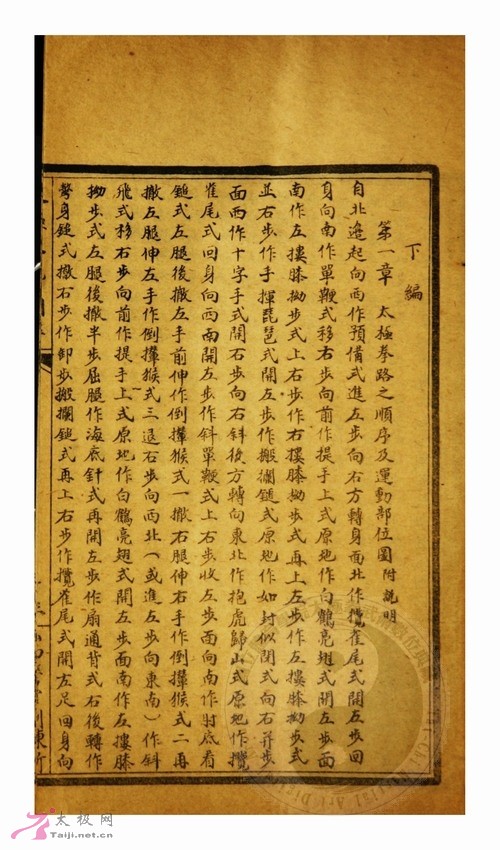 下編
第一章 太極拳路之順序及運動部位圖附說明
自北邊起向西作預備式進左步向右方轉身面北作攬雀尾式開左步回
身向南作單鞭式移右步向前作提手上式原地作白鶴亮翅式開左步面
南作左摟膝拗步式上右步作右摟膝拗步式再上左步作左摟膝拗步式
並右步作手揮琵琶式開左步作搬攔鎚式原地作如封似閉式向右开步
面西作十字手式開右步向右斜後方轉向東北作抱虎歸山式原地作攬
雀尾式回身向西南開左步作斜單鞭式上右步收左步面向南作肘底看
鎚式左腿後撤左手前伸作倒攆猴式一撤右腿伸右手作倒攆猴式二再
撤左腿伸左手作倒攆猴式三退右步向西北(或進左步向東南)作斜
飛式移右步向前作提手上式原地作白鶴亮翅式開左步面南作左摟膝
拗步式左腿後撤半步屈腿作海底針式再開左步作扇通背式右後轉作
彆身鎚式撤右步作卸步搬攔鎚式再上右步作攬雀尾式開左足回身向
太极网
Taiji.net.cn